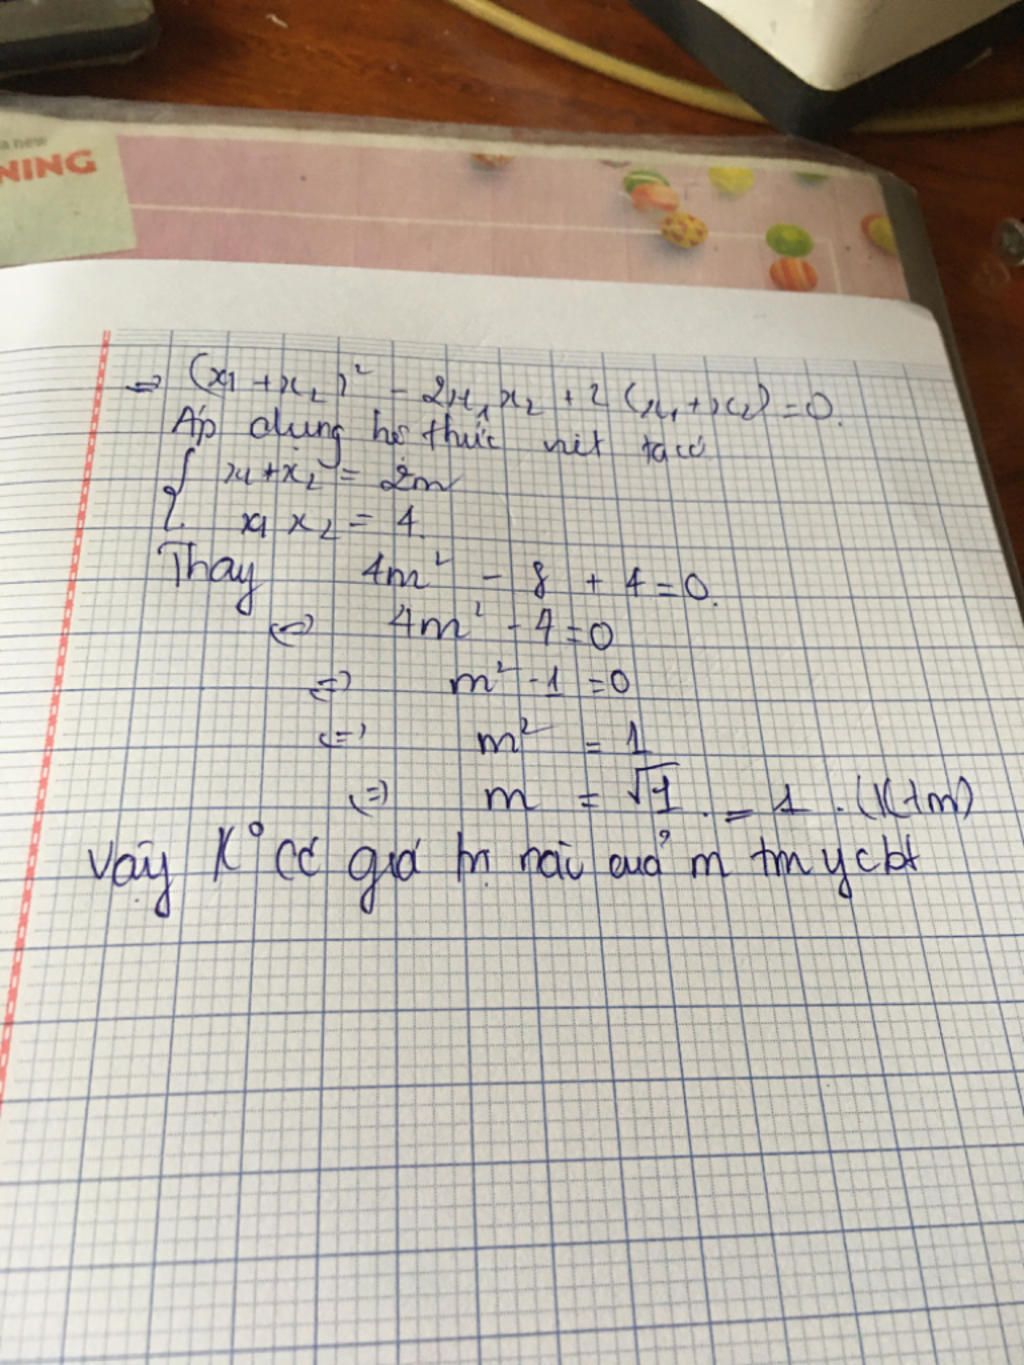 a new
NING
=> (x₁ + x₂)² - 2x₁x₂ + 2(x₁+x₂) = 0.
Áp dụng hệ thức viet ta có
{ x₁+x₂ = 2m
x₁x₂ = 4.
Thay 4m² - 8 + 4 = 0.
<=> 4m² - 4 = 0
<=> m² - 1 = 0
<=> m² = 1
<=> m = √1. = 1. (Ktm)
Vậy K° có giá trị nào của m tm ycbt